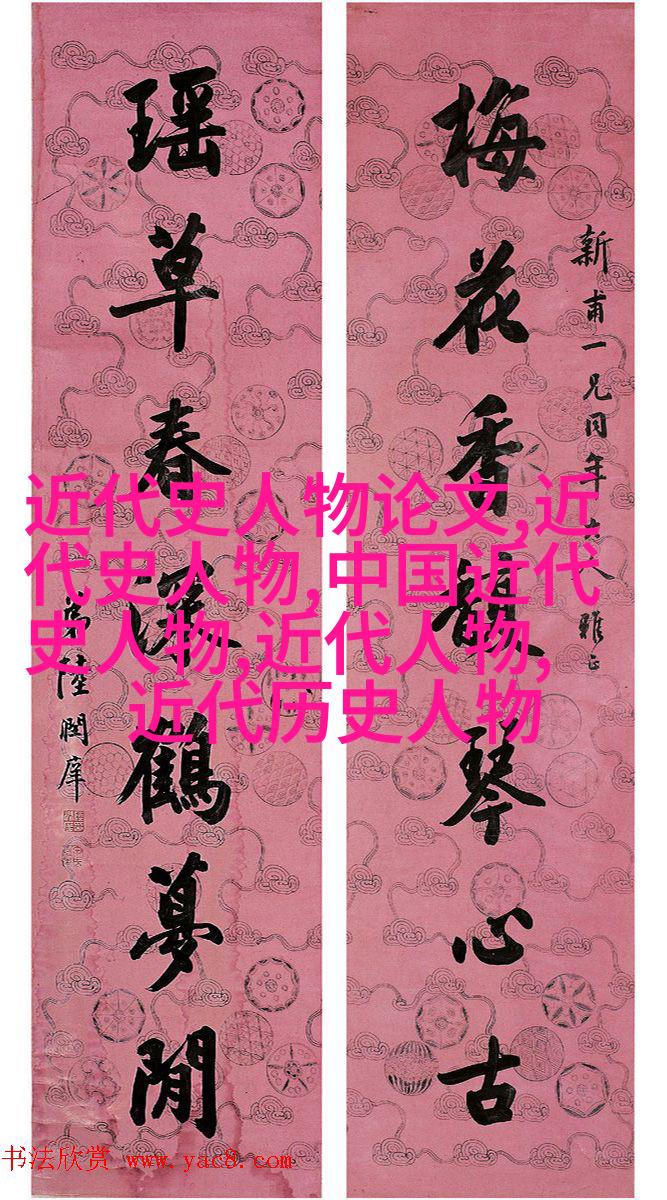 新甫一兄同年大人雅正
梅花香馥琴心古
瑶草春深鶴夢閒
弟陸潤庠
近代史人物论文,近
代史人物,中国近代
史人物,近代人物,
近代历史人物
书法欣赏 www.yac8.com